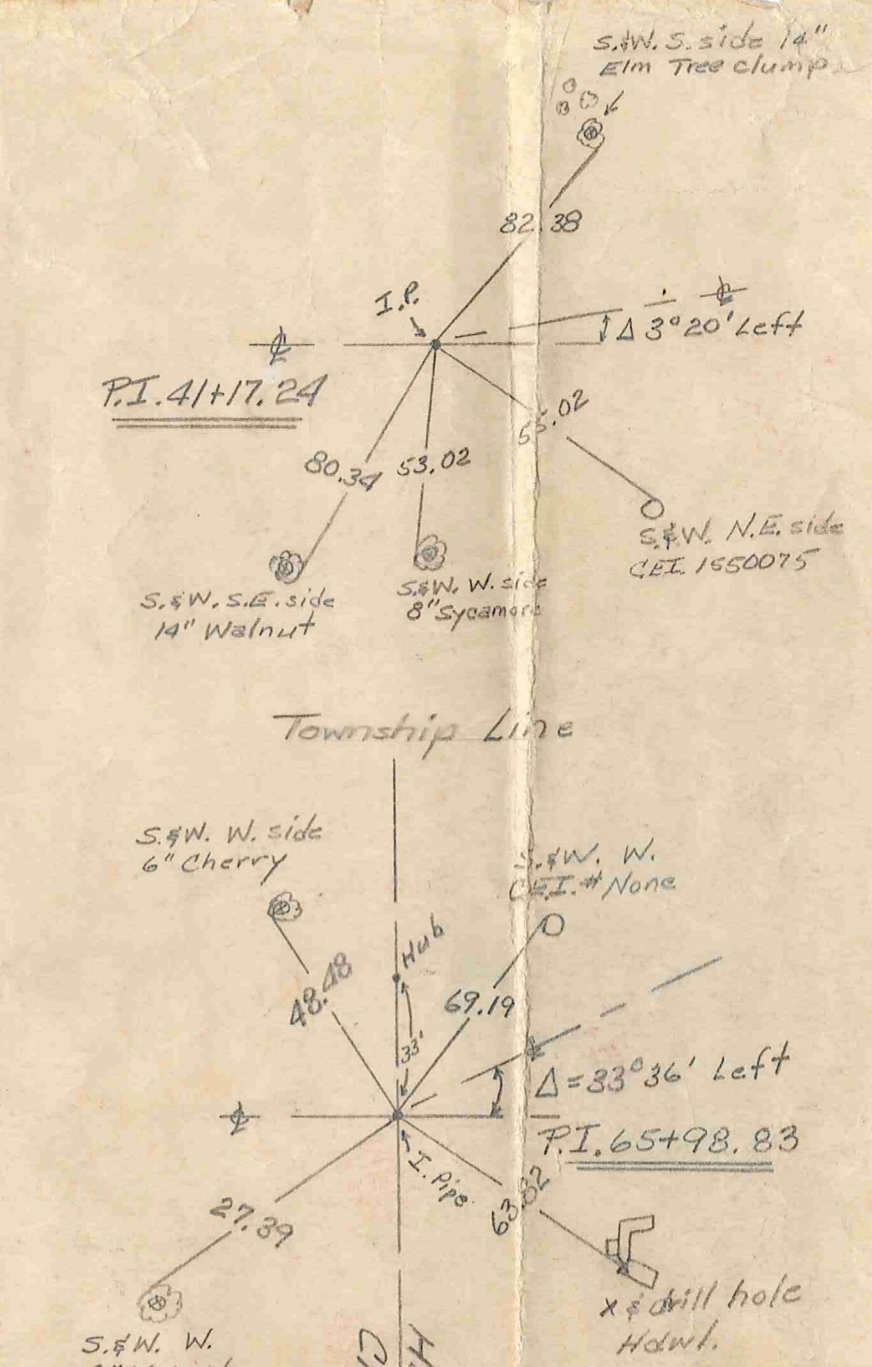 S.&W. S. side 14"
Elm Tree clump
82.38
I.P.
℄
℄
Δ 3°20' Left
P.I. 41+17.24
80.34
53.02
55.02
S.&W. N.E. side
CEI. 1550075
S.&W. S.E. side
14" Walnut
S.&W. W. side
8" Sycamore
Township Line
S.&W. W. side
6" Cherry
S.&W. W.
CEI. # None
Hub
48.48
69.19
33'
Δ = 33°36' Left
℄
P.I. 65+98.83
I. Pipe
63.82
27.39
X & drill hole
Hdwl.
S.&W. W.